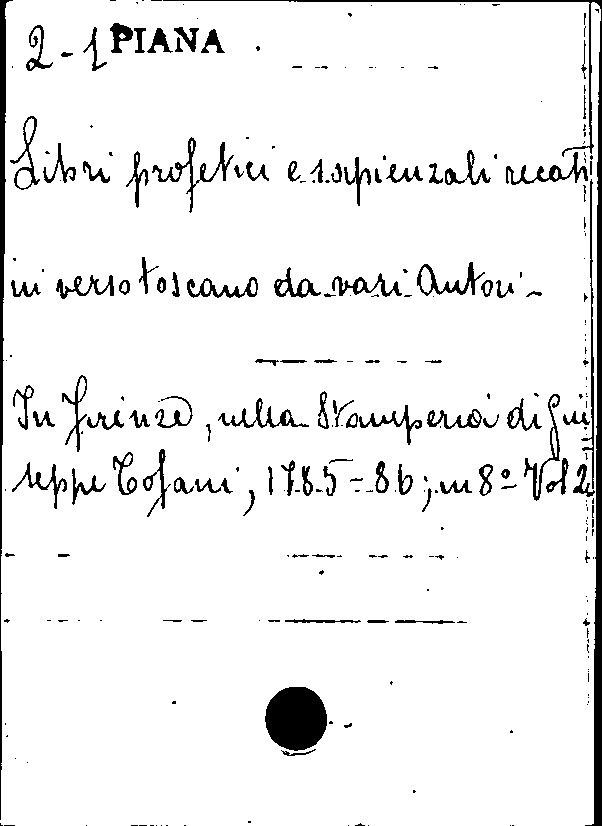 2-1 PIANA
Libri profetici e sapienzali recati
in verso toscano da vari Autori-
In Firenze, nella Stamperia di Giu
seppe Tofani, 1785-86; in 8º Vol 2